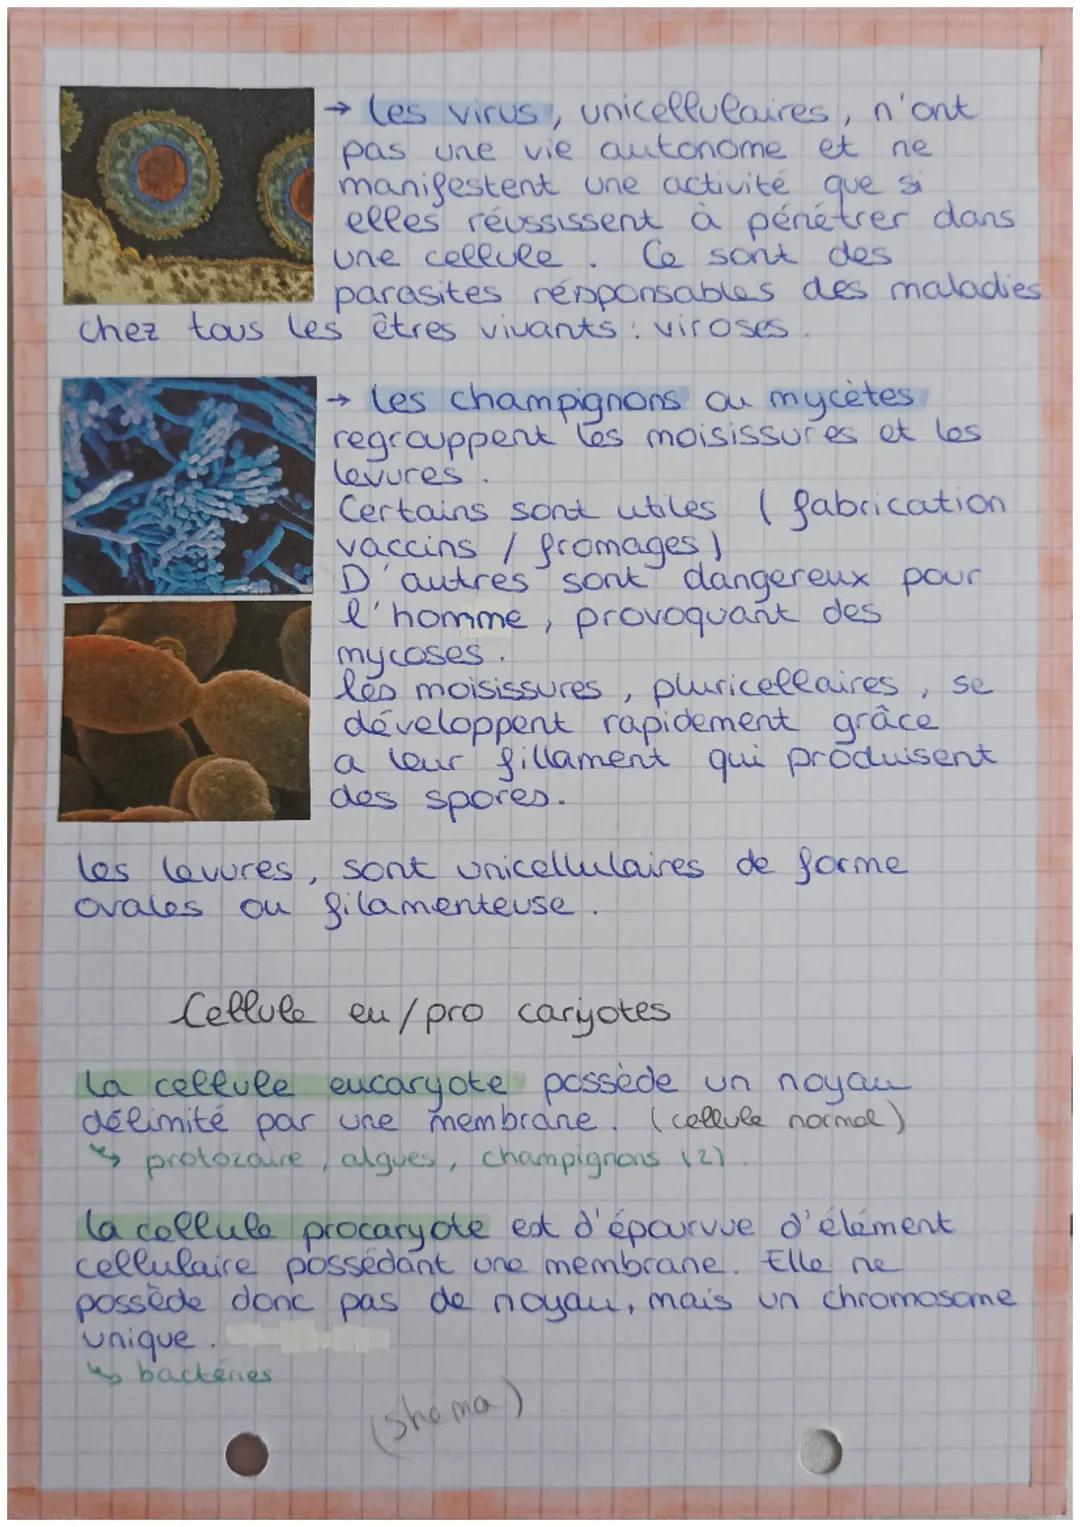 → Les virus, unicellulaires, n'ont
pas une vie autonome et ne
manifestent une activité que si
elles réussissent à pénétrer dans
une cellule. Ce sont des
parasites résponsables des maladies
chez tous les êtres vivants : viroses.
→ Les champignons ou mycètes
regrouppent les moisissures et les
levures.
Certains sont utiles (fabrication
vaccins / fromages)
D'autres sont dangereux pour
l'homme, provoquant des
mycoses.
les moisissures, pluricellaires, se
développent rapidement grâce
a leur fillament qui produisent
des spores.
Les levures, sont unicellulaires de forme
ovales ou filamenteuse.
Cellule eu/pro caryotes
La cellule eucaryote possède un noyau
délimité par une membrane. (cellule normal)
↳ protozaire, algues, champignons (2).
La cellule procaryote est d'épourvue d'élément
cellulaire possédant une membrane. Elle ne
possède donc pas de noyau, mais un chromosome
unique.
↳ bactéries
(shéma)